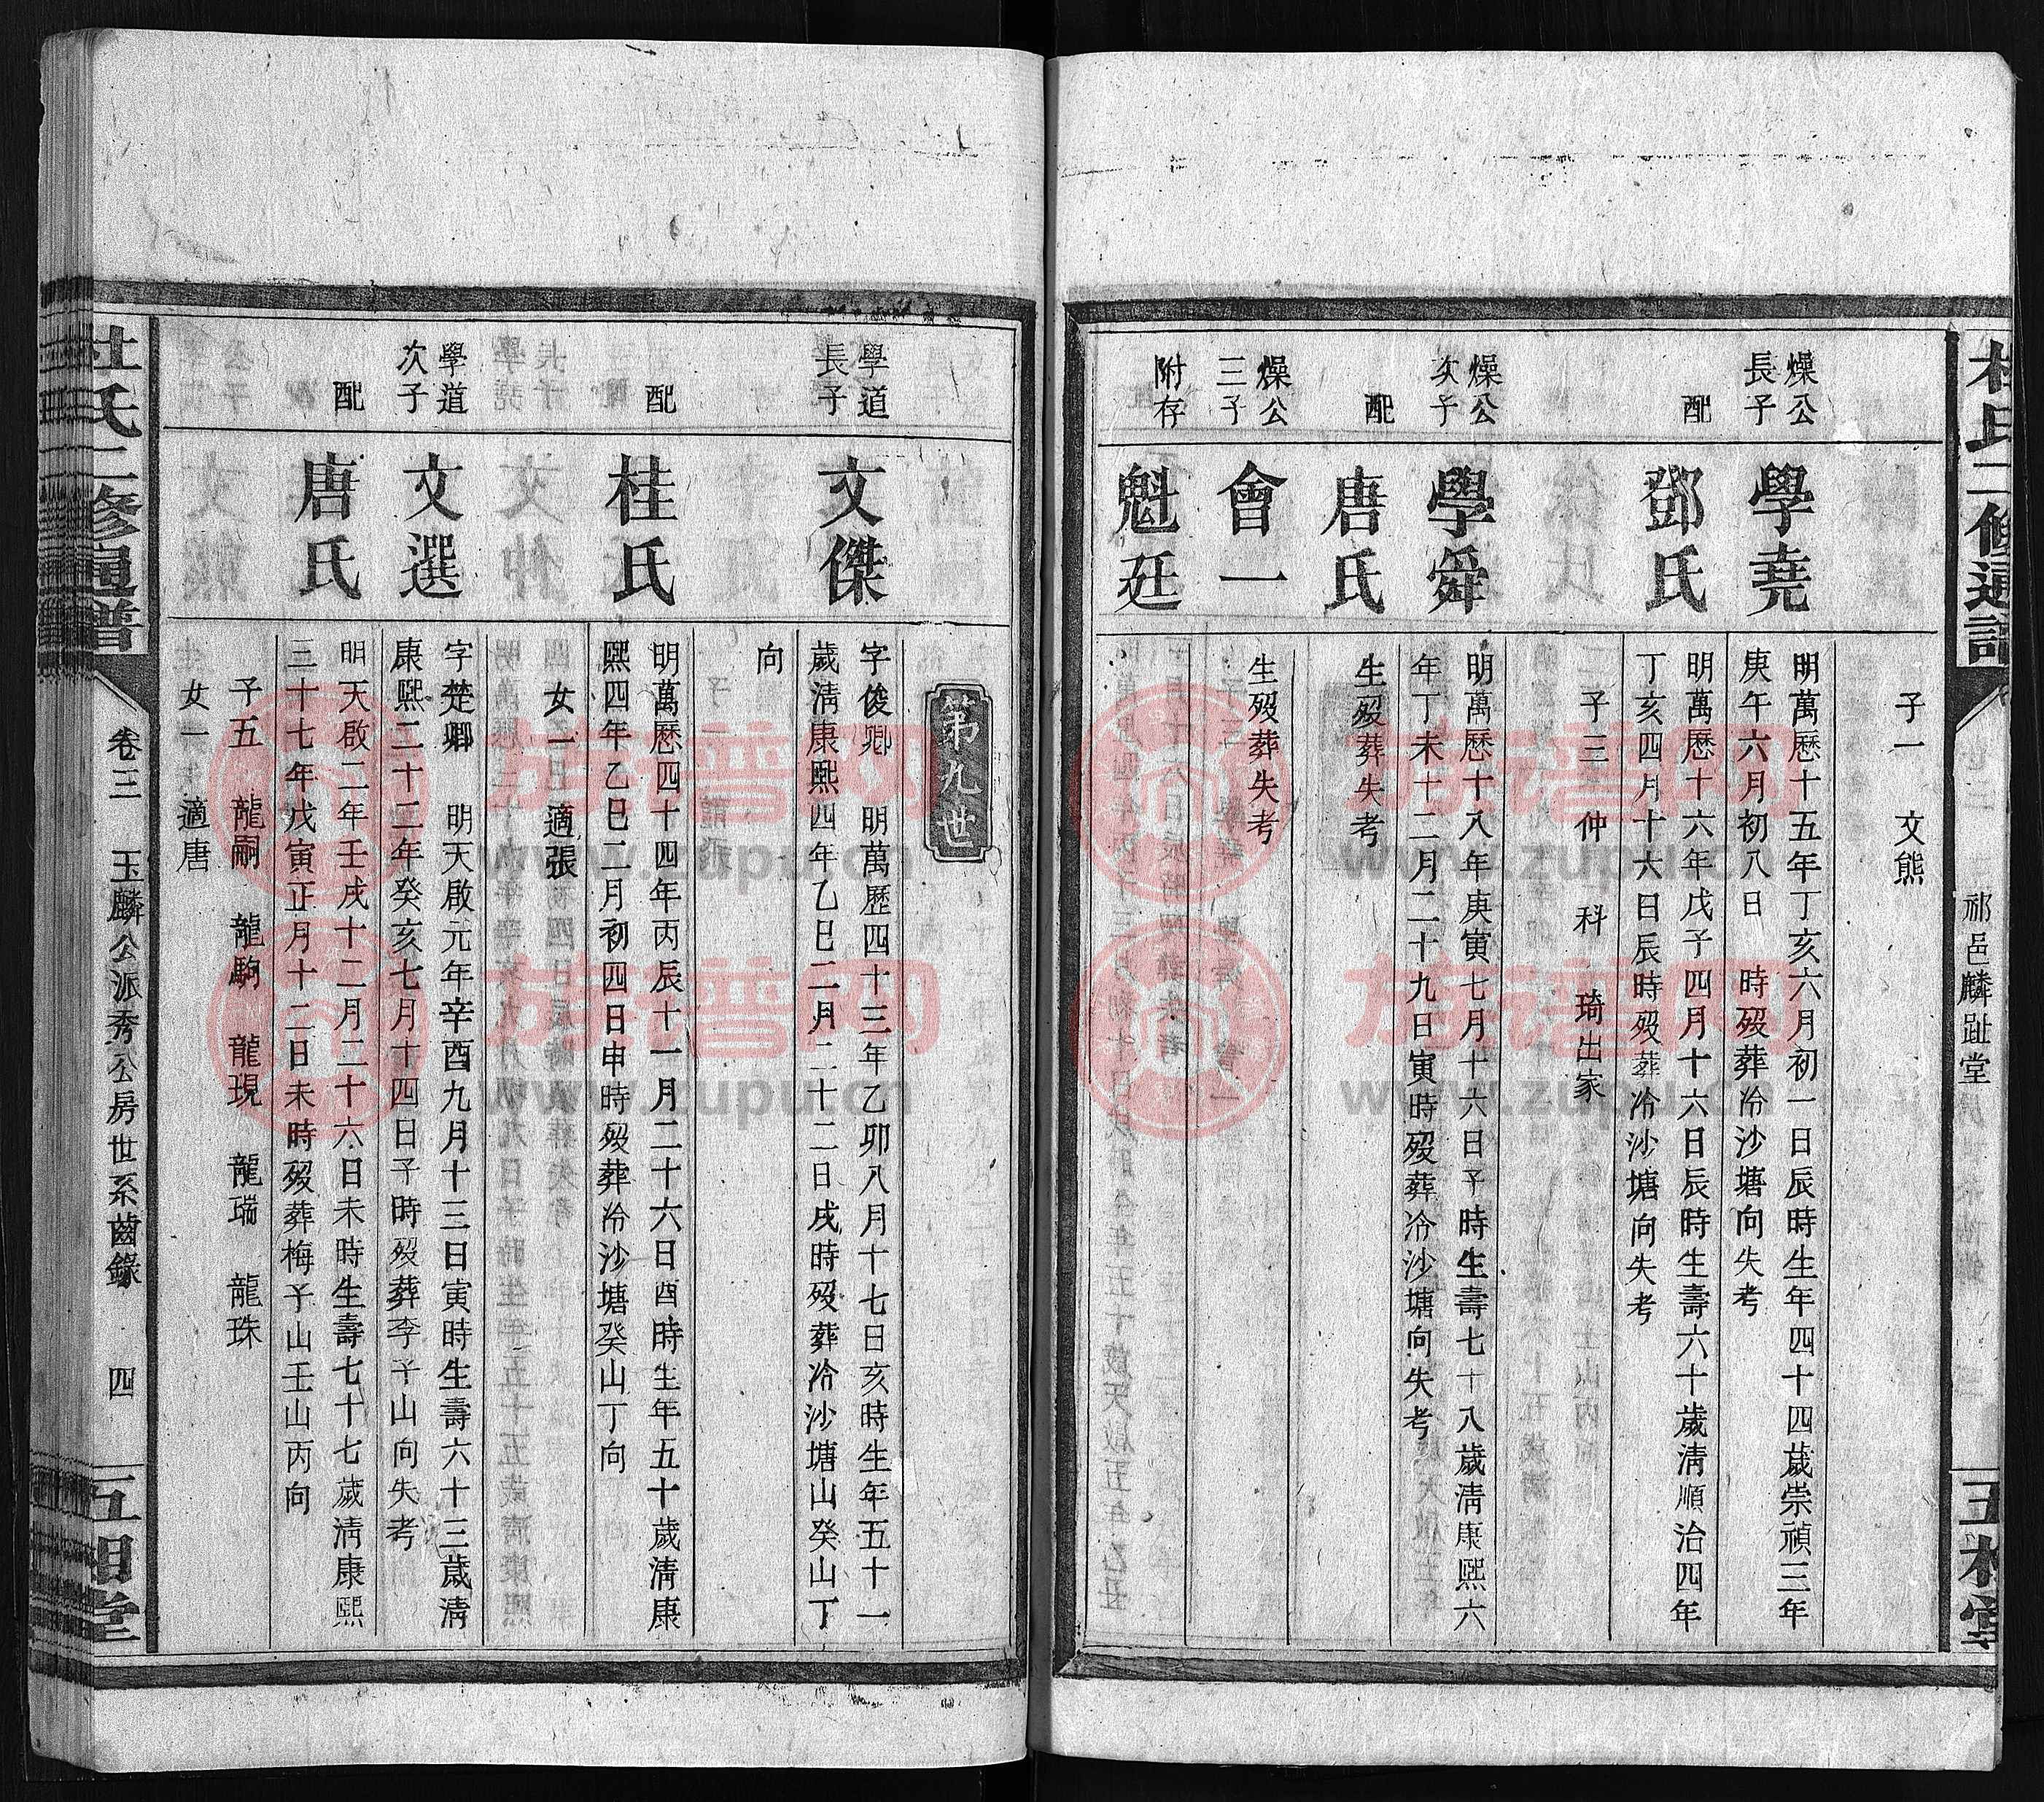 杜氏二修通譜
祁邑麟趾堂
五相堂
子一　文熊
燥公
長子
學堯
明萬歷十五年丁亥六月初一日辰時生年四十四歲崇禎三年
庚午六月初八日　時歿葬冷沙塘向失考
配
鄧氏
明萬歷十六年戊子四月十六日辰時生壽六十歲淸順治四年
丁亥四月十六日辰時歿葬冷沙塘向失考
子三　仲　科　琦出家
燥公
次子
學舜
明萬歷十八年庚寅七月十六日子時生壽七十八歲淸康熙六
年丁未十二月二十九日寅時歿葬冷沙塘向失考
配
唐氏
生歿葬失考
燥公
三子
會一
生歿葬失考
附存
魁廷
第九世
學道
長子
文傑
字俊卿　明萬歷四十三年乙卯八月十七日亥時生年五十一
歲淸康熙四年乙巳二月二十二日戌時歿葬冷沙塘山癸山丁
向
配
桂氏
明萬歷四十四年丙辰十一月二十六日酉時生年五十歲淸康
熙四年乙巳二月初四日申時歿葬冷沙塘癸山丁向
女一　適張
學道
次子
文選
字楚卿　明天啟元年辛酉九月十三日寅時生壽六十三歲淸
康熙二十二年癸亥七月十四日子時歿葬李子山向失考
配
唐氏
明天啟二年壬戌十二月二十六日未時生壽七十七歲淸康熙
三十七年戊寅正月十二日未時歿葬梅子山壬山丙向
子五　龍嗣　龍駒　龍現　龍瑞　龍珠
女一　適唐
杜氏二修通譜
卷三　玉麟公派秀公房世系齒錄　四
五相堂
族譜网
www.zupu.cn
族譜网
www.zupu.cn
族譜网
www.zupu.cn
族譜网
www.zupu.cn